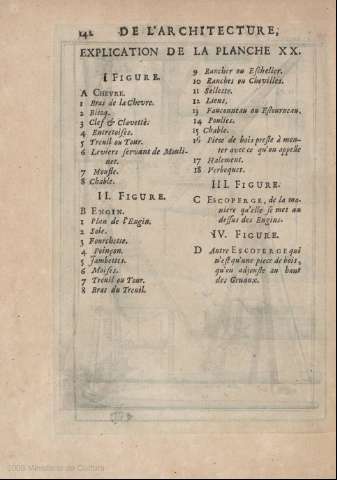 142 DE L'ARCHITECTURE,
EXPLICATION DE LA PLANCHE XX.
I FIGURE.
A CHEVRE.
1 Bras de la Chevre.
2 Bicoq.
3 Clef & Clavette.
4 Entretoises.
5 Treuil ou Tour.
6 Leviers servant de Mouli-
net.
7 Moufle.
8 Chable.
II. FIGURE.
B ENGIN.
1 Plan de l'Engin.
2 Sole.
3 Fourchette.
4 Poinçon.
5 Jambettes.
6 Moises.
7 Treuil ou Tour.
8 Bras du Treuil.
9 Rancher ou Eschelier.
10 Ranches ou Chevilles.
11 Sellette.
12 Liens,
13 Fauconneau ou Estourneau.
14 Poulies.
15 Chable.
16 Piece de bois preste à mon-
ter avec ce qu'on appelle
17 Halement.
18 Verboquet.
III FIGURE.
C ESCOPERGE, de la ma-
niere qu'elle se met au
dessus des Engins.
IV. FIGURE.
D Autre ESCOPERGE qui
n'est qu'une piece de bois,
qu'on adjouste au haut
des Gruaux.
2009 Ministerio de Cultura